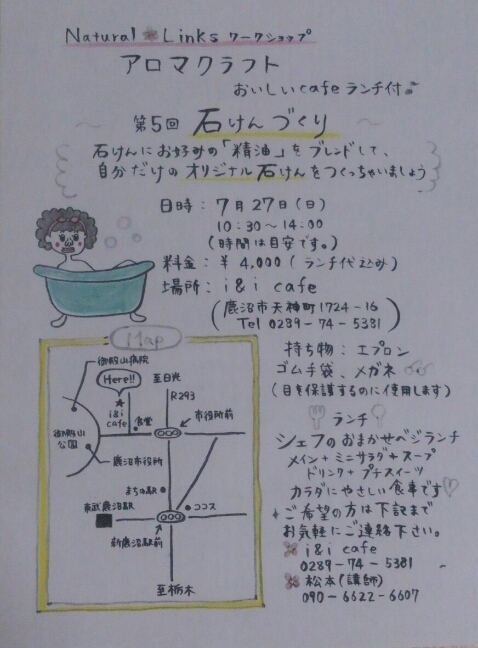 Natural Links ワークショップ
アロマクラフト
おいしいcafeランチ付♪
第5回 石けんづくり
石けんにお好みの「精油」をブレンドして、
自分だけのオリジナル石けんをつくっちゃいましょう
日時：7月27日（日）
10:30〜14:00
（時間は目安です。）
料金：¥4,000（ランチ代込み）
場所：i&i cafe
（鹿沼市天神町1724-16
Tel 0289-74-5381）
Map
御殿山病院
Here!!
至日光
R293
i&i
cafe
食堂
市役所前
御殿山
公園
鹿沼市役所
まちの駅
東武鹿沼駅
ココス
新鹿沼駅前
至栃木
持ち物：エプロン
ゴム手袋、メガネ
（目を保護するのに使用します）
ランチ
シェフのおまかせベジランチ
メイン+ミニサラダ+スープ
ドリンク+プチスイーツ
カラダにやさしい食事です♡
ご希望の方は下記まで
お気軽にご連絡下さい。
i&i cafe
0289-74-5381
松本（講師）
090-6622-6607